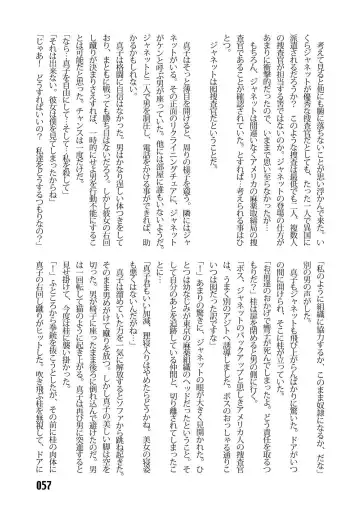 考えて見ると他にも腑に落ちないことが思い浮かんできた。い
くらジャネットが優秀な捜査官だとしても、たった一人で異国に
派遣されるだろうか?このような捜査は最低でも二人、複数人
の捜査官が担当する筈ではないのか。ジャネットの登場の仕方が
あまりに衝撃的だったので、いままで思い至らなかったが……。
もちろん、ジャネットは間違いなくアメリカの麻薬取締局の捜
査官であることが確認されていた。とすれば…考えられる事はひ
とつ。
ジャネットは囮捜査官だということだ。
真子はそっと薄目を開けると、周りの様子を窺う。隣にはジャ
ネットがいる。その正面のリクライニングチェアに、ジャネット
がケンと呼ぶ男が座っていた。他には部屋に誰もいないようだ。
ジャネットと二人で男を制圧し、電話をかければ、助
かるかもしれない。
真子は格闘に自信はなかった。男はかなり逞しい体つきをして
おり、まともに戦っても勝ち目はないだろう。しかし彼女の右回
し蹴りが決まりさえすれば、一時的にせよ男を行動不能にするこ
とは可能だと思った。チャンスは一度だけだ。
「なら、真子を自由にして…そして…私を殺して」
「それは出来ない。彼女は僕を見てしまったからね」
「じゃあ…どうすればいいの?私達をどうするつもりなの?」
「私のように組織に協力するか、このまま奴隷になるか、だな」
真子もジャネットも飛び上がらんばかりに驚いた。ドアがいつ
の間にか開けられ、そこに桂が立っていた。
「お前達のおかげで警察が死んでしまったよ。どう責任を取るつ
もりだ?」桂は扉を閉めると男の側に行く。
「ボス、ジャネットのバックアップと思しきアメリカ人の捜査官
は、うまく別のアジトへ誘導しました。ボスのおっしゃる通りこ
いつは囮だった訳です」
「!」あまりの驚きに、ジャネットの眼が大きく見開かれた。ひ
とつは幼なじみが東京の麻薬組織のヘッドだったということ、そ
して自分のあとを追跡している仲間と、切り離されてしまったこ
とだ。
「真子君もいい加減、狸寝入りはやめたらどうかね。美女の寝姿
も悪くはないんだがね」
真子は溜めていた力を一気に解放するとソファから跳ね起きた。
そのまま男めがけて蹴りを放つ。しかし真子の美しい脚は空を
切った。男が椅子に座ったまま後ろに倒れ込んで避けたのだ。男
は一回転して猫のように起き上がる。真子は再び男に突進すると
見せ掛けて、今度は桂に襲い掛かった。
「!」ふところから拳銃を抜こうとしたが、その前に桂の肉体に
真子の右回し蹴りがヒットした。吹き飛ぶ桂を無視して、ドアに
057